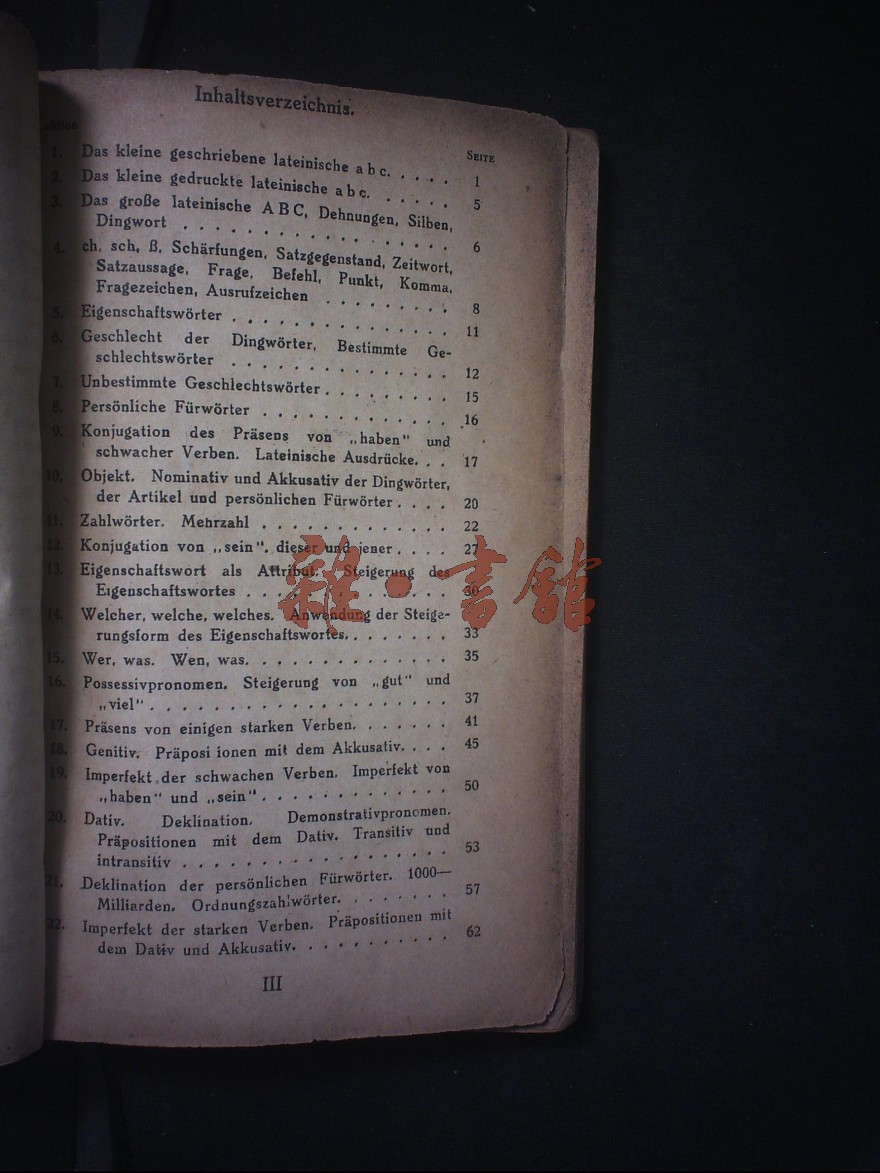 Inhaltsverzeichnis.
SEITE
1. Das kleine geschriebene lateinische a b c. . . . . 1
2. Das kleine gedruckte lateinische a b c. . . . . . 5
3. Das große lateinische A B C, Dehnungen, Silben,
Dingwort . . . . . . . . . . . . . . . 6
4. ch, sch, ß, Schärfungen, Satzgegenstand, Zeitwort,
Satzaussage, Frage, Befehl, Punkt, Komma,
Fragezeichen, Ausrufzeichen . . . . . . . . 8
5. Eigenschaftswörter . . . . . . . . . . . . . 11
6. Geschlecht der Dingwörter, Bestimmte Ge-
schlechtswörter . . . . . . . . . . . . . 12
7. Unbestimmte Geschlechtswörter . . . . . . . . 15
8. Persönliche Fürwörter . . . . . . . . . . . . 16
9. Konjugation des Präsens von „haben" und
schwacher Verben. Lateinische Ausdrücke. . . 17
10. Objekt. Nominativ und Akkusativ der Dingwörter,
der Artikel und persönlichen Fürwörter . . . . 20
11. Zahlwörter. Mehrzahl . . . . . . . . . . . . 22
12. Konjugation von „sein", dieser und jener . . . . 27
13. Eigenschaftswort als Attribut. Steigerung des
Eigenschaftswortes . . . . . . . . . . . . . 30
14. Welcher, welche, welches. Anwendung der Steige-
rungsform des Eigenschaftswortes. . . . . . . . 33
15. Wer, was. Wen, was. . . . . . . . . . . . . 35
16. Possessivpronomen. Steigerung von „gut" und
„viel" . . . . . . . . . . . . . . . . . . 37
17. Präsens von einigen starken Verben. . . . . . . 41
18. Genitiv. Präposi ionen mit dem Akkusativ. . . . 45
19. Imperfekt der schwachen Verben. Imperfekt von
„haben" und „sein" . . . . . . . . . . . . 50
20. Dativ. Deklination. Demonstrativpronomen.
Präpositionen mit dem Dativ. Transitiv und
intransitiv . . . . . . . . . . . . . . . . 53
21. Deklination der persönlichen Fürwörter. 1000—
Milliarden. Ordnungszahlwörter. . . . . . . . 57
22. Imperfekt der starken Verben. Präpositionen mit
dem Dativ und Akkusativ. . . . . . . . . . . 62
III
雜·書館